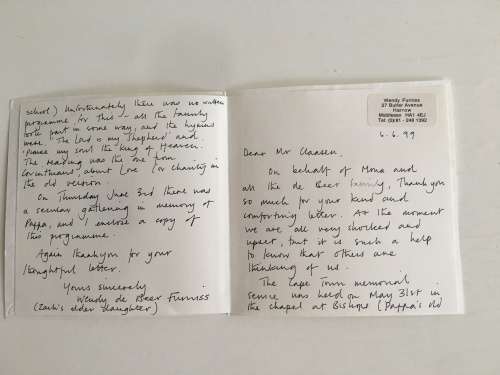 Wendy Furniss
Butler Avenue
Harrow
Middlesex HA1 4EJ
6.6.99
Dear Mr Claasen,
On behalf of Mona and
all the de Beer family, thankyou
so much for your kind and
comforting letter. At the moment
we are all very shocked and
upset, but it is such a help
to know that others are
thinking of us.
The Cape Town memorial
service was held on May 31st in
the chapel at Bishops (Pappa's old
school) Unfortunately there was no written
programme for this - all the family
took part in some way, and the hymns
were 'The Lord is my Shepherd' and
'Praise my soul the King of Heaven'.
The reading was the one from
Corinthians, about Love (or charity in
the old version.
On Thursday June 3rd there was
a secular gathering in memory of
Pappa, and I enclose a copy of
this programme.
Again thankyou for your
thoughtful letter.
Yours sincerely
Wendy de Beer Furniss
(Zach's elder daughter)